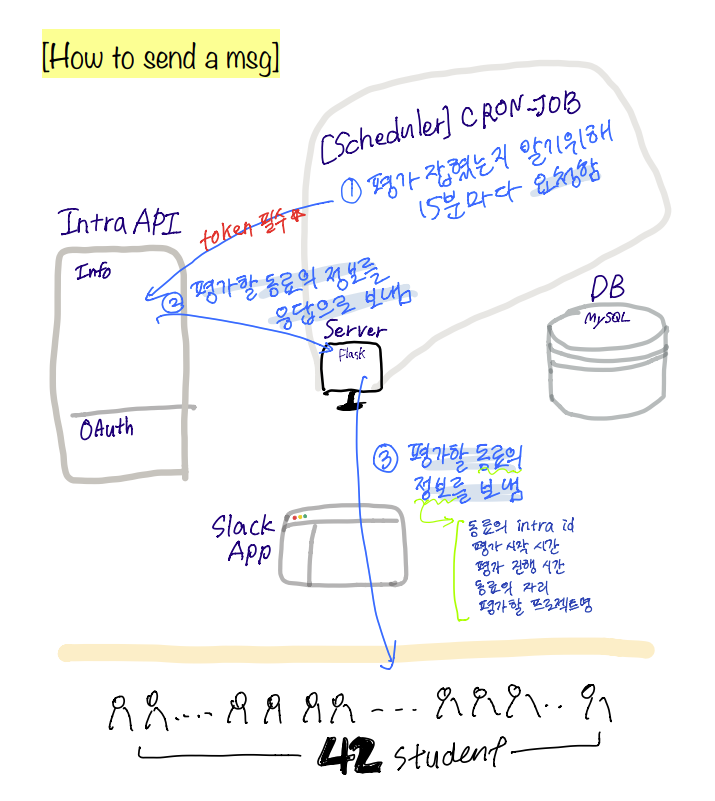 [How to send a msg]
[Scheduler] CRON-JOB
① 평가 잡혔는지 알기위해
15분마다 요청함
Intra API
token 필수 ★
Info
② 평가할 동료의 정보를
응답으로 보냄
Server
Flask
DB
MySQL
OAuth
③ 평가할 동료의
정보를 보냄
Slack
App
동료의 intra id
평가 시작 시간
평가 진행 시간
동료의 자리
평가할 프로젝트명
42 student